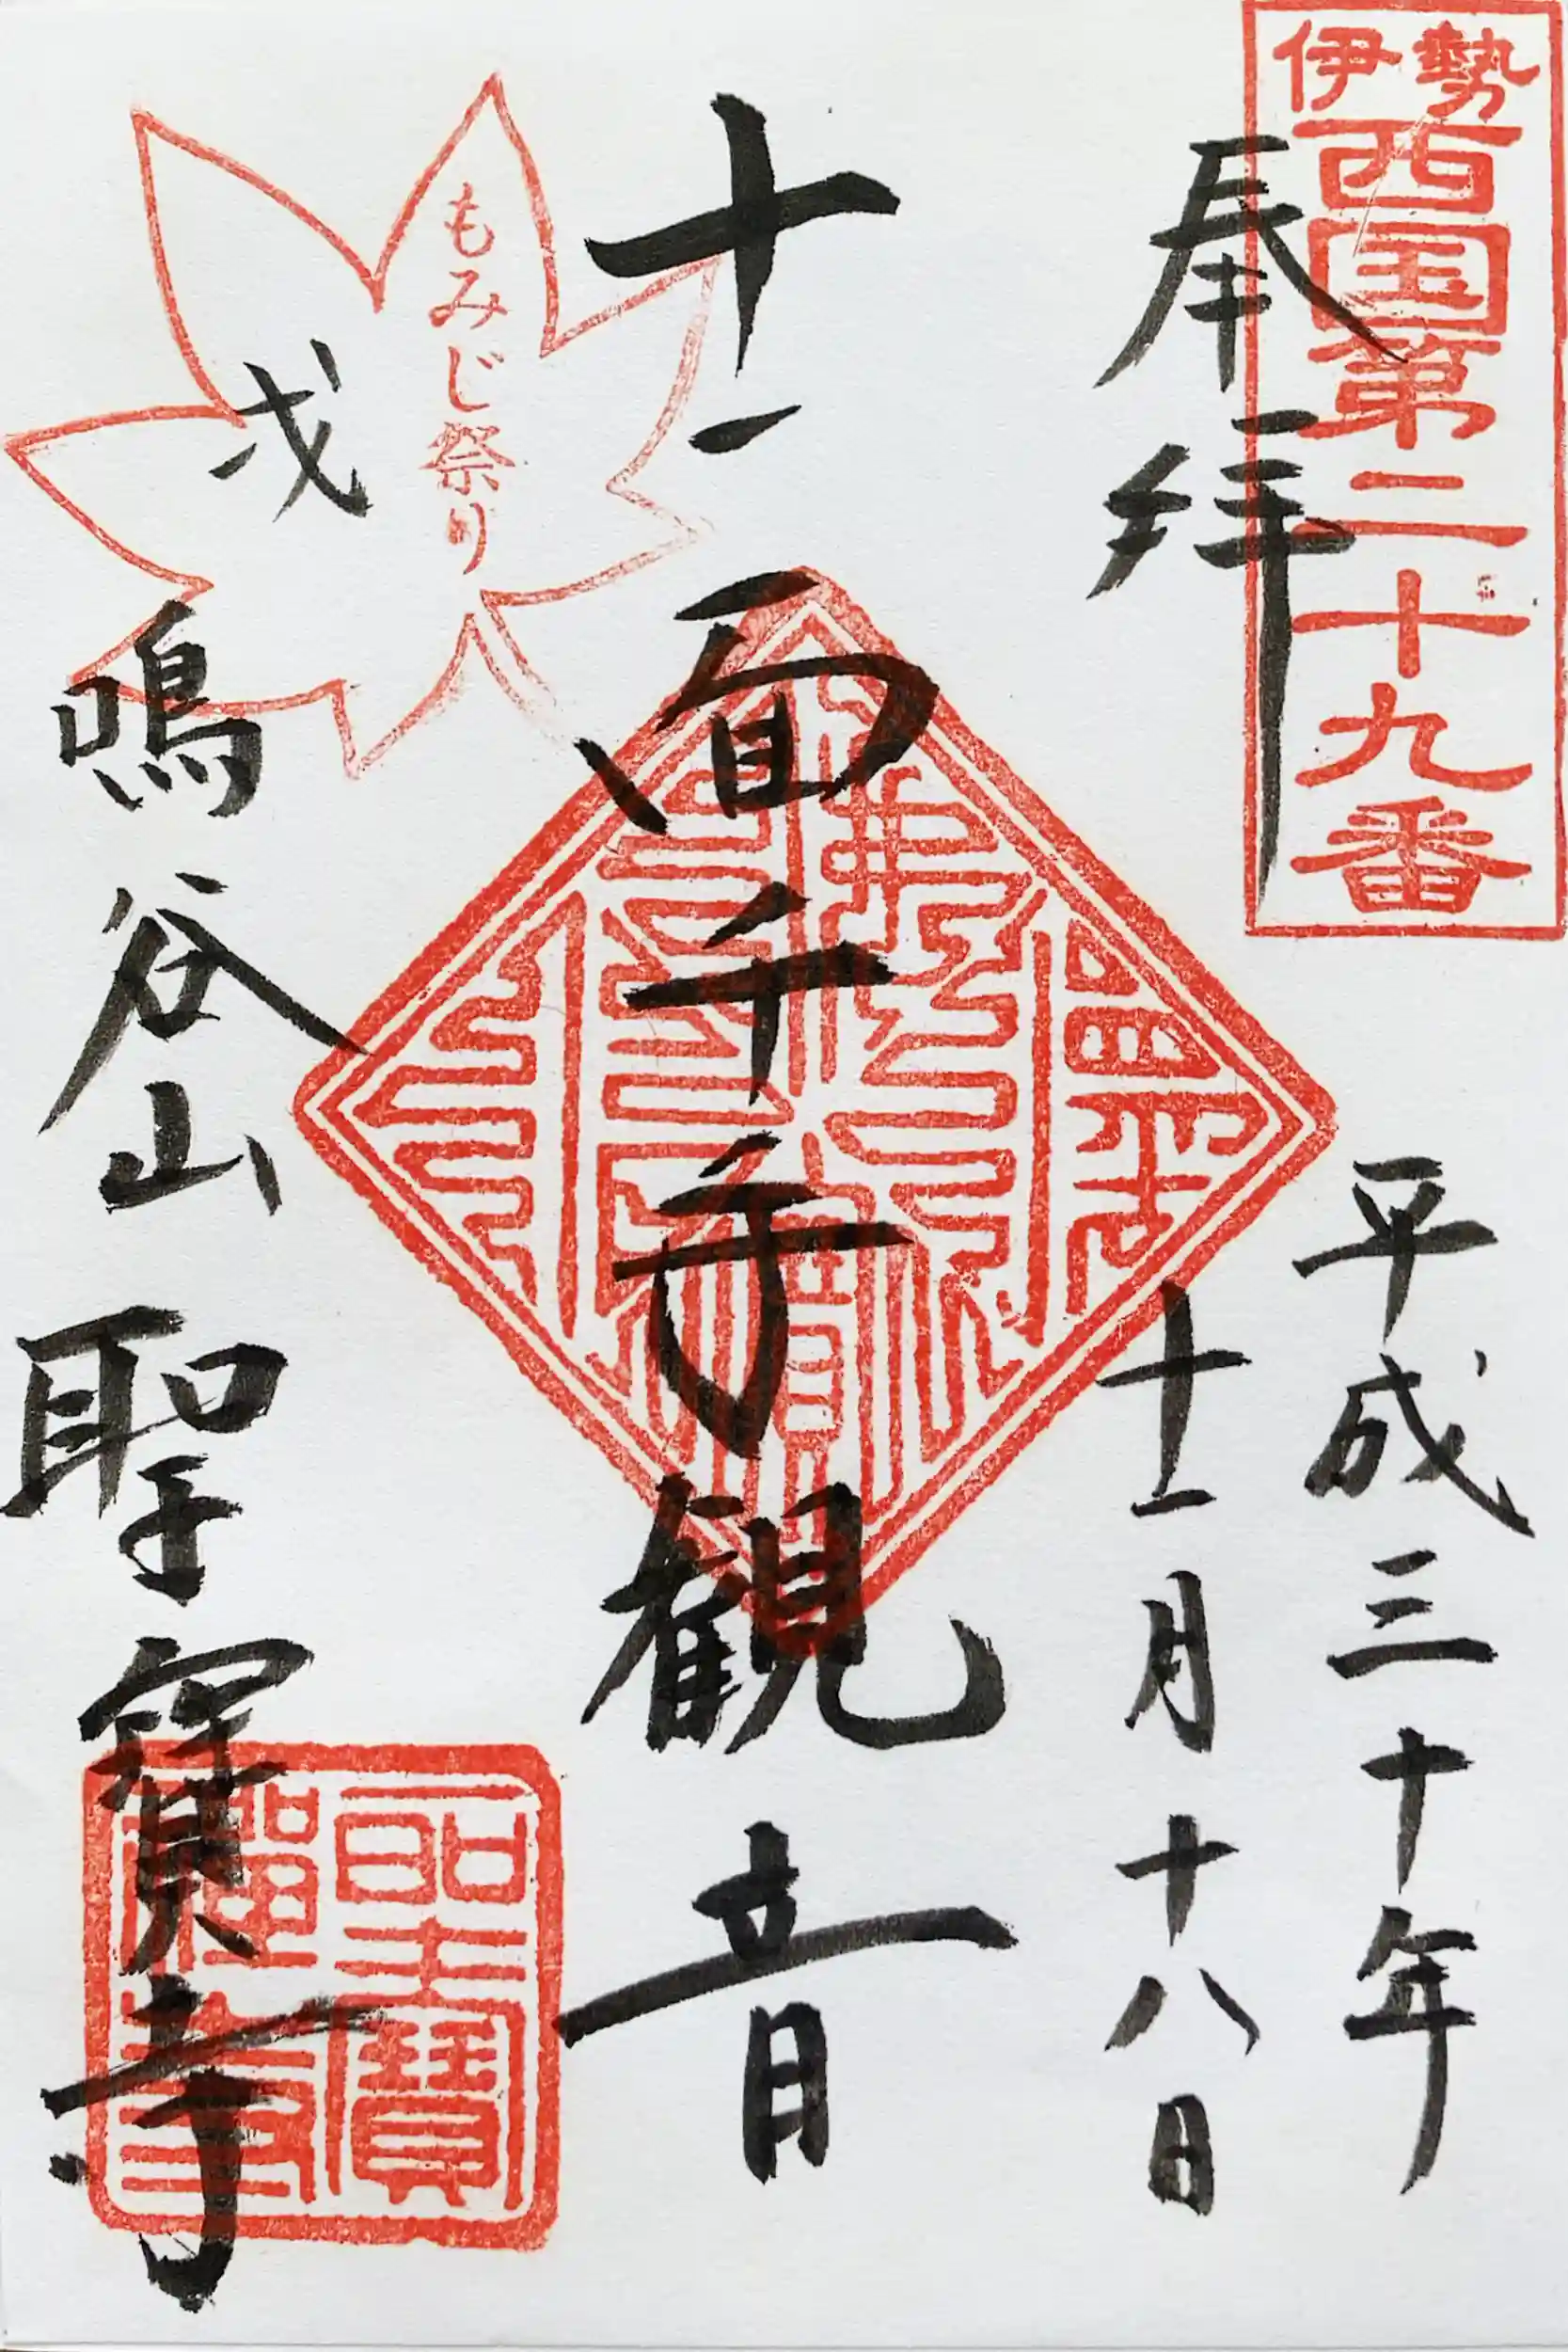 伊勢
西国第二十九番
奉拝
平成三十年
十一月十八日
十一面千手観音
もみじ祭り
戌
鳴谷山
聖寳寺
聖寳禅寺